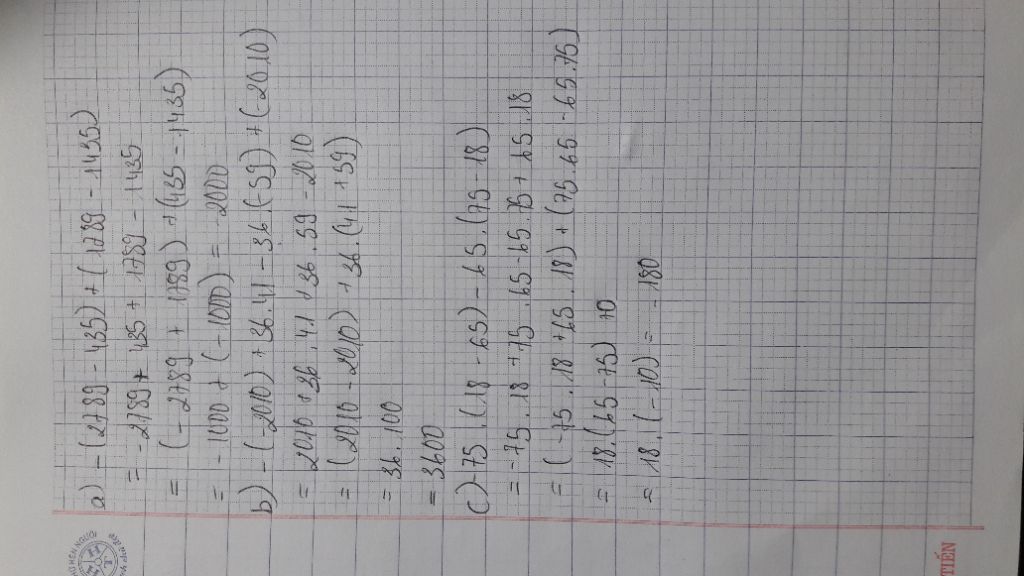 a) - (2789 - 435) + (1789 - 1435)
= -2789 + 435 + 1789 - 1435
= (-2789 + 1789) + (435 - 1435)
= -1000 + (-1000) = -2000
b) - (-2010) + 36.41 - 36.(-59) + (2010)
= 2010 + 36.41 + 36.59 - 2010
= (2010 - 2010) + 36.(41 + 59)
= 36.100
= 3600
c) -75.(18 - 65) - 65.(75 - 18)
= -75.18 + 75.65 - 65.75 + 65.18
= (-75.18 + 65.18) + (75.65 - 65.75)
= 18.(65 - 75) + 0
= 18.(-10) = -180
TIẾN